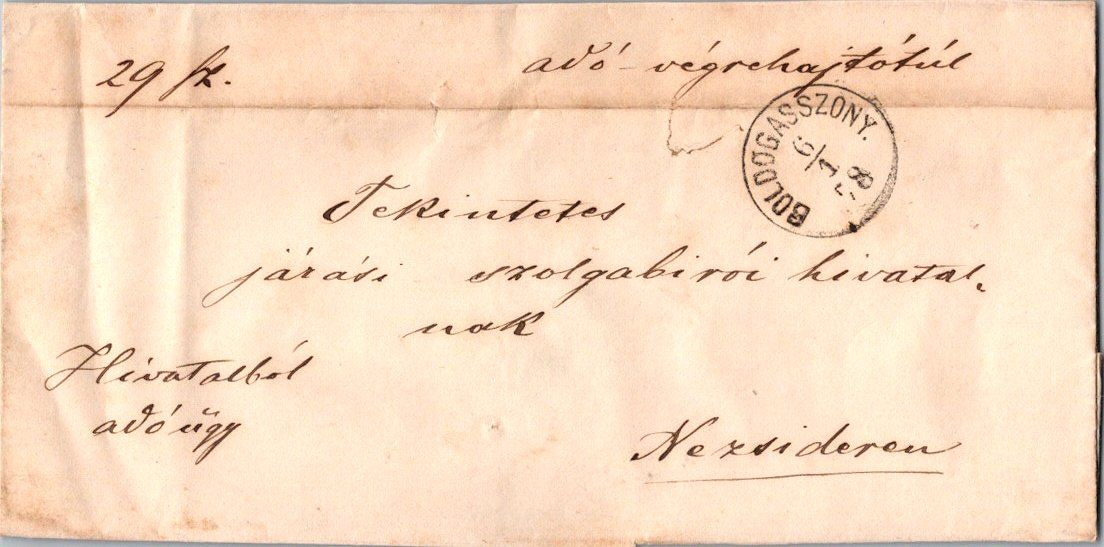 29 sz. adó-végrehajtótúl
BOLDOGASSZONY.
6/1
78
Tekintetes
járási szolgabirói hivatal-
nak
Hivatalból
adóügy
Nezsideren